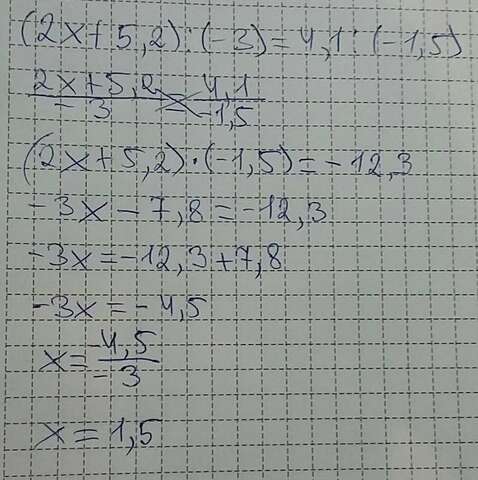 (2x+5,2):(-3)=4,1:(-1,5)
(2x+5,2)/(-3)=4,1/(-1,5)
(2x+5,2)·(-1,5)=-12,3
-3x-7,8=-12,3
-3x=-12,3+7,8
-3x=-4,5
x=-4,5/-3
x=1,5